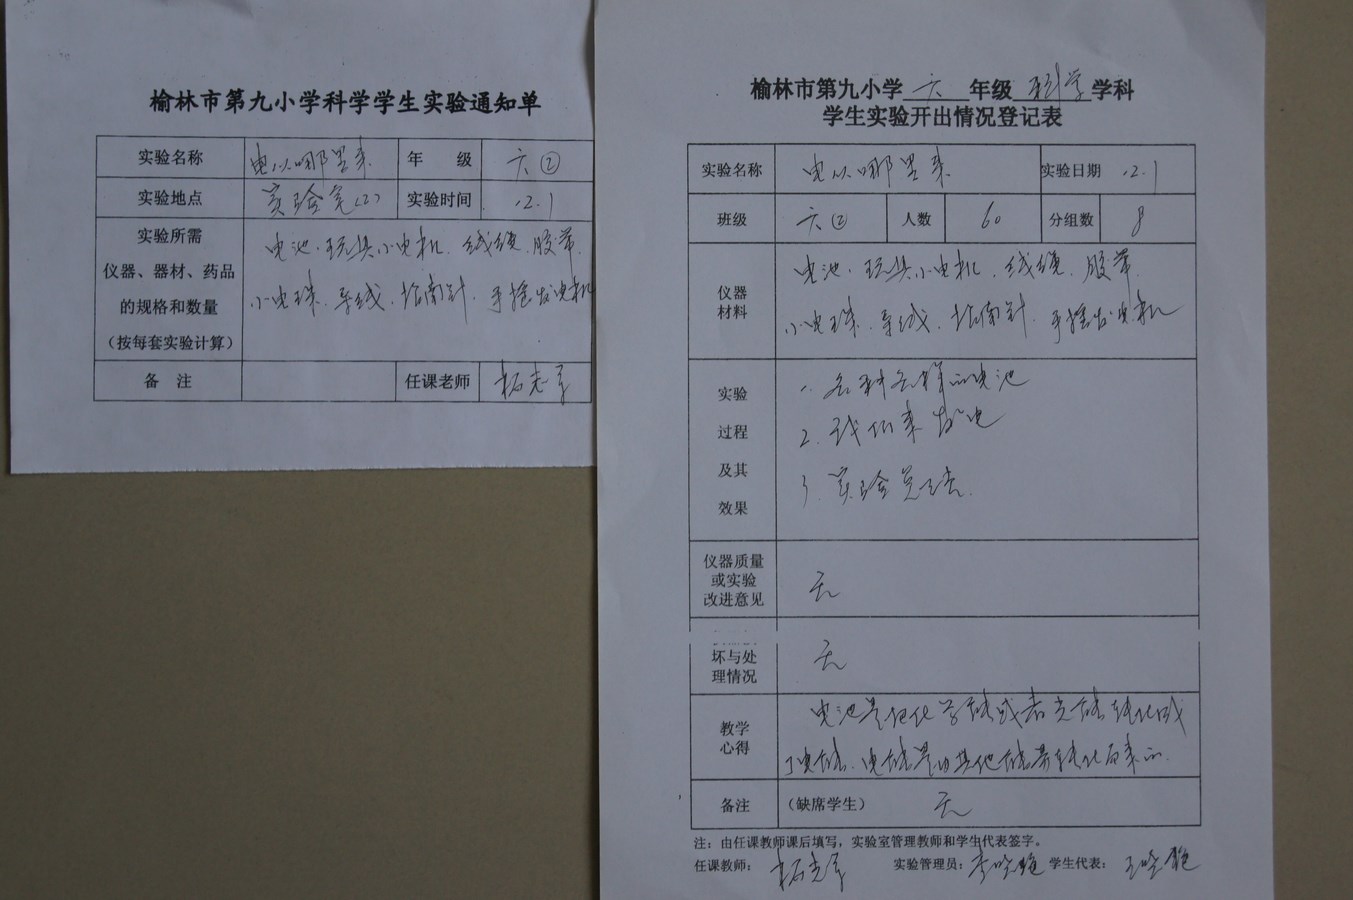 榆林市第九小学科学学生实验通知单
实验名称 电从哪里来 年 级 六②
实验地点 实验室(2) 实验时间 12.1
实验所需
仪器、器材、药品
的规格和数量
（按每套实验计算）
电池、玩具小电机、线绕、胶带、
小电珠、导线、指南针、手摇发电机
备 注 任课老师
榆林市第九小学 六 年级 科学 学科
学生实验开出情况登记表
实验名称 电从哪里来 实验日期 12.1
班级 六② 人数 60 分组数 8
仪器
材料
电池、玩具小电机、线绕、胶带、
小电珠、导线、指南针、手摇发电机
实验
过程
及其
效果
1. 各种各样的电池
2. 我们来发电
3. 实验总结
仪器质量
或实验
改进意见
无
坏与处
理情况
无
教学
心得
电池是把化学能或者光能转化成
了电能、电能是由其他能量转化而来的
备注 （缺席学生） 无
注：由任课教师课后填写，实验室管理教师和学生代表签字。
任课教师： 实验管理员： 学生代表：